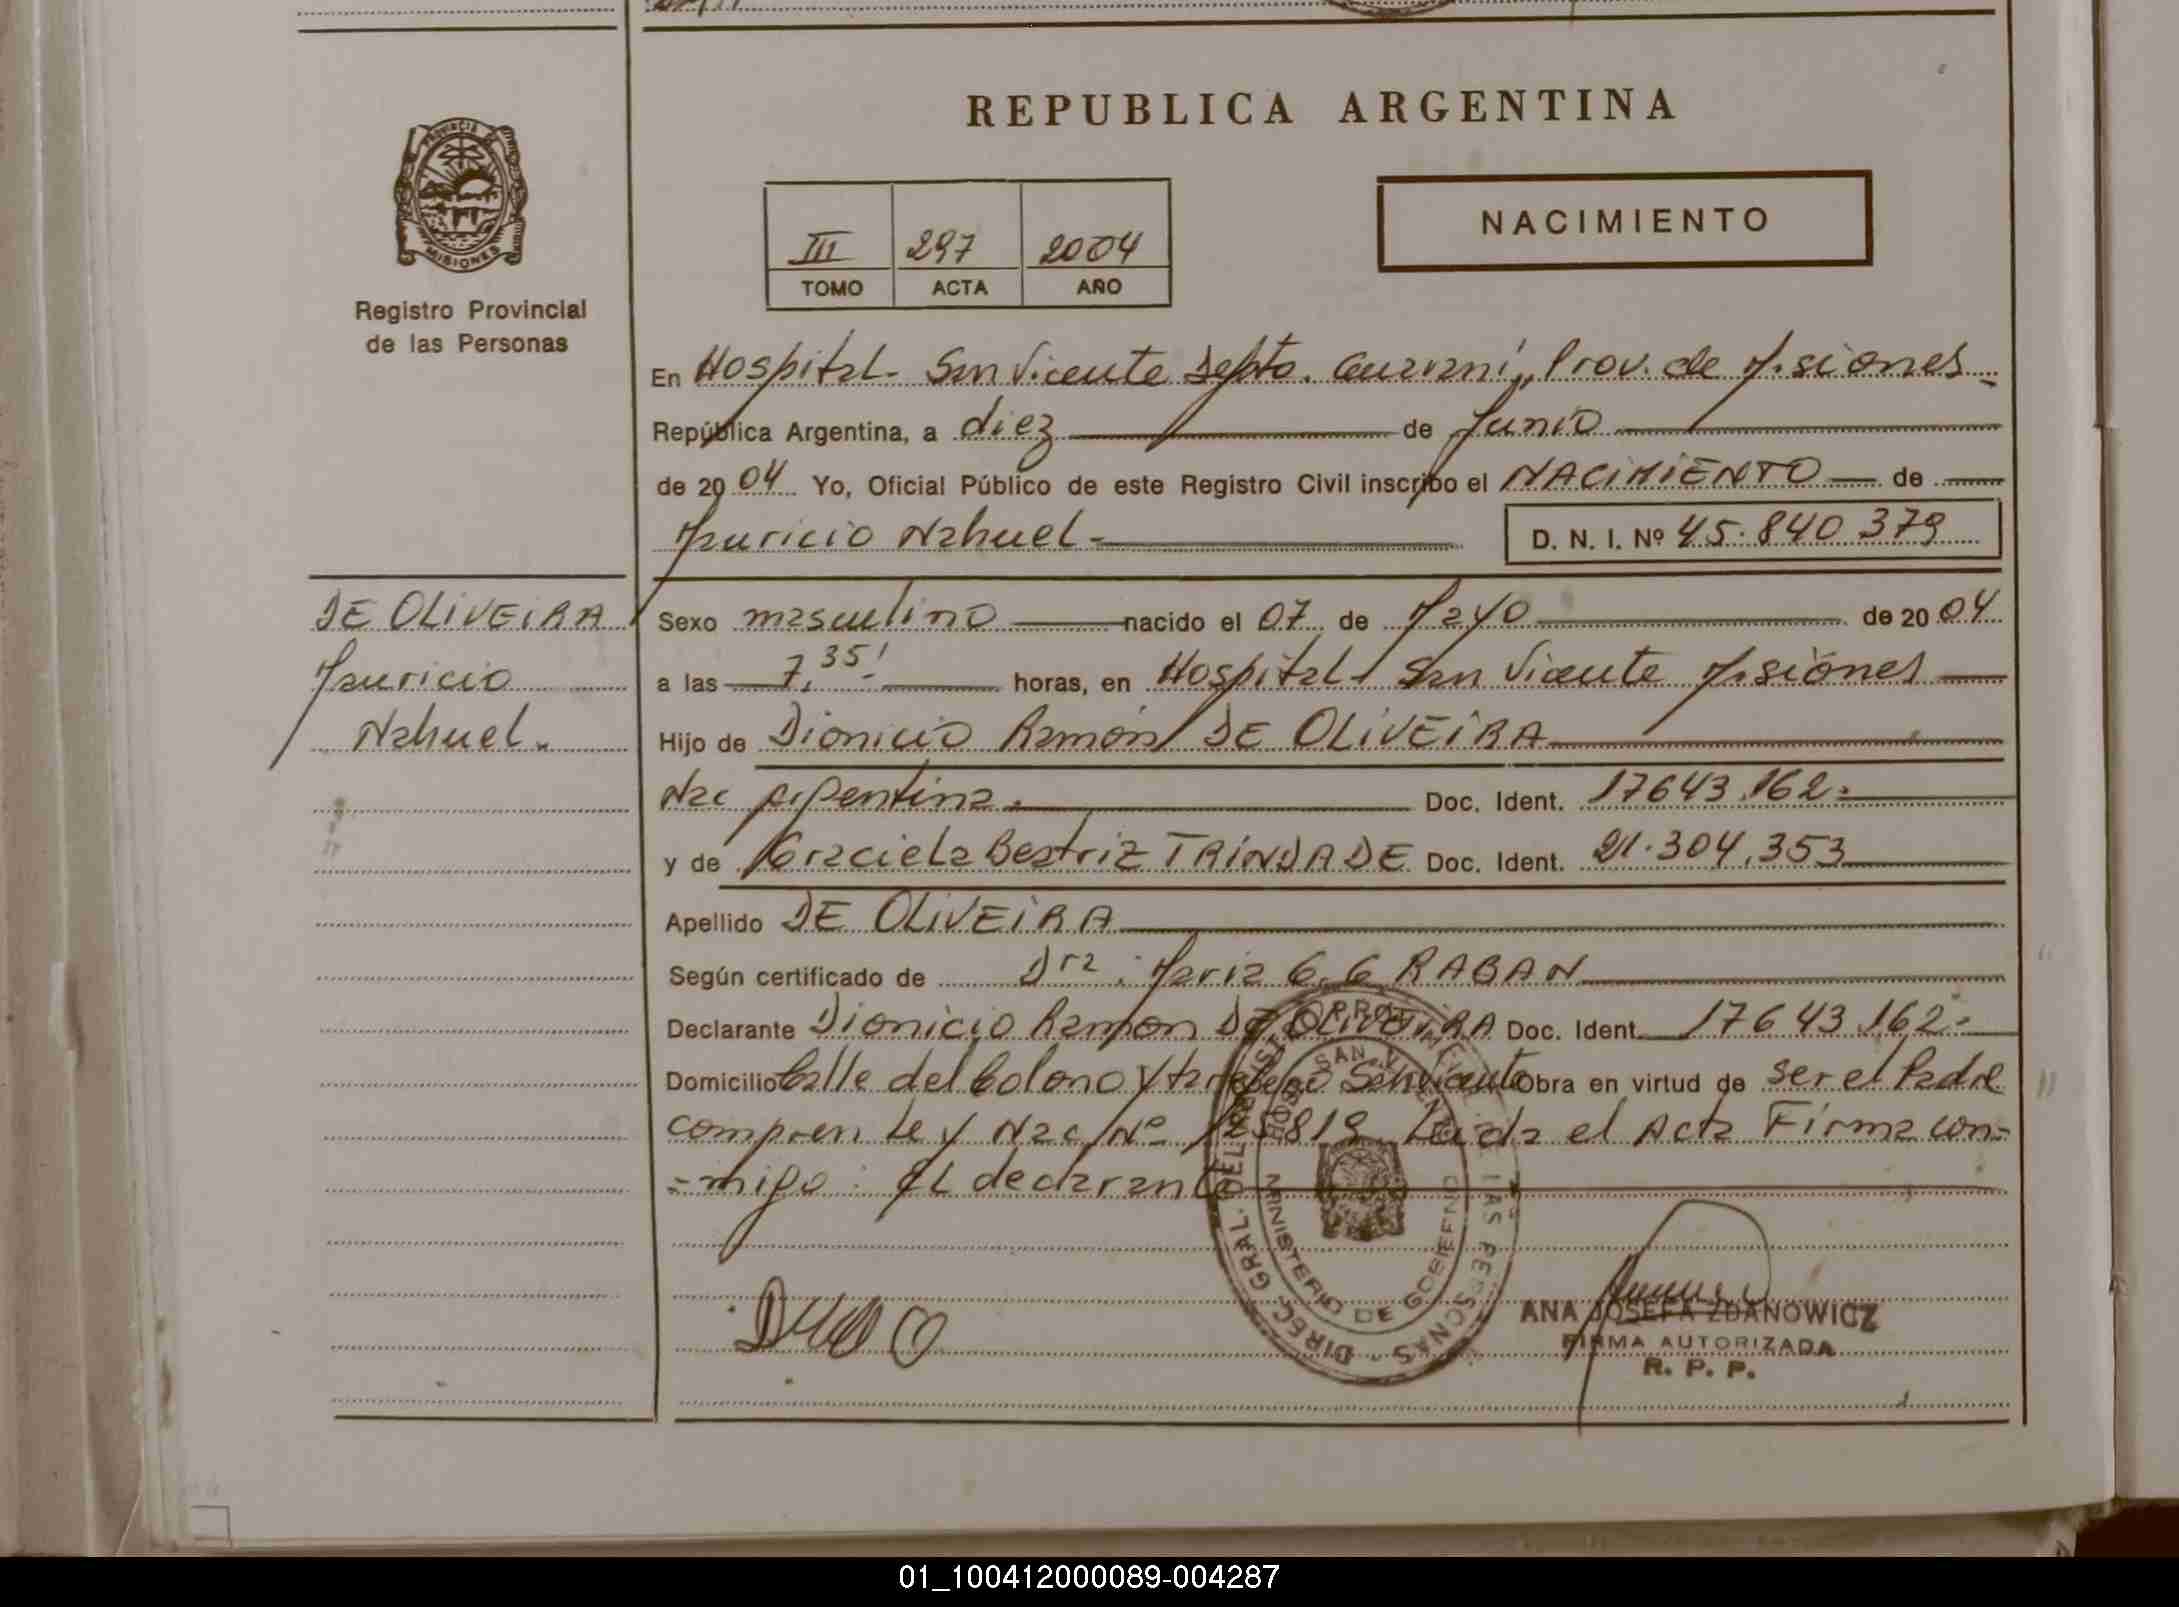 REPUBLICA ARGENTINA
PROVINCIA DE MISIONES
Registro Provincial
de las Personas
III 297 2004
TOMO ACTA AÑO
NACIMIENTO
En Hospital - San Vicente Depto. Guaraní, Prov. de Misiones
República Argentina, a diez de Junio
de 2004 Yo, Oficial Público de este Registro Civil inscribo el NACIMIENTO de
Mauricio Nahuel - D. N. I. Nº 45.840.379
DE OLIVEIRA
Mauricio
Nahuel.
Sexo masculino nacido el 07 de Mayo de 2004
a las 7,35' horas, en Hospital San Vicente Misiones
Hijo de Dionicio Ramón DE OLIVEIRA
Nac Argentina. Doc. Ident. 17643.162.
y de Graciela Beatriz TRINDADE Doc. Ident. 21.304.353
Apellido DE OLIVEIRA
Según certificado de Dra. Maria G. G RABAN
Declarante Dionicio Ramon DE OLIVEIRA Doc. Ident. 17643.162.
Domicilio Calle del Colono y San Vicente Obra en virtud de ser el Padre
Nac Nº Leida el Acta Firma con=
=migo: El declarante
DIREC. GRAL. DEL REGISTRO PROVINCIAL DE LAS PERSONAS
SAN VICENTE
MINISTERIO DE GOBIERNO
ANA JOSEFA ZDANOWICZ
FIRMA AUTORIZADA
R. P. P.
01_100412000089-004287